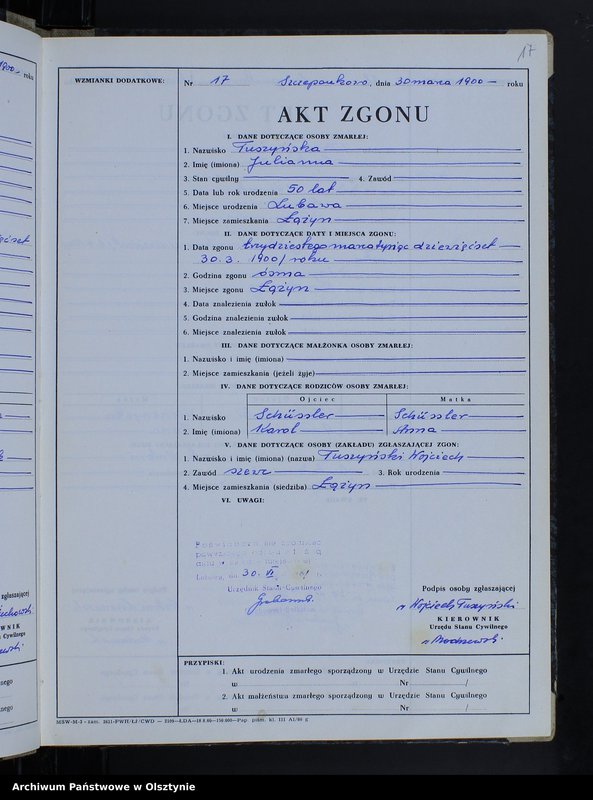 17
1900- roku
WZMIANKI DODATKOWE:
Nr 17 Szczepankowo, dnia 30 marca 1900 — roku
AKT ZGONU
I. DANE DOTYCZĄCE OSOBY ZMARŁEJ:
1. Nazwisko Tuszyńska
2. Imię (imiona) Julianna
3. Stan cywilny — 4. Zawód —
5. Data lub rok urodzenia 50 lat
6. Miejsce urodzenia Lubawa
7. Miejsce zamieszkania Łążyn
II. DANE DOTYCZĄCE DATY I MIEJSCA ZGONU:
1. Data zgonu trzydziestego marca tysiąc dziewięćset
30. 3. 1900/ roku
2. Godzina zgonu ósma
3. Miejsce zgonu Łążyn
4. Data znalezienia zwłok
5. Godzina znalezienia zwłok
6. Miejsce znalezienia zwłok
III. DANE DOTYCZĄCE MAŁŻONKA OSOBY ZMARŁEJ:
1. Nazwisko i imię (imiona)
2. Miejsce zamieszkania (jeżeli żyje)
IV. DANE DOTYCZĄCE RODZICÓW OSOBY ZMARŁEJ:
Ojciec Matka
1. Nazwisko Schüssler Schüssler
2. Imię (imiona) Karol Anna
V. DANE DOTYCZĄCE OSOBY (ZAKŁADU) ZGŁASZAJĄCEJ ZGON:
1. Nazwisko i imię (imiona) (nazwa) Tuszyński Wojciech
2. Zawód szewc 3. Rok urodzenia
4. Miejsce zamieszkania (siedziba) Łążyn
VI. UWAGI:
Lubawa, dn. 30. VI
Urzędnik Stanu Cywilnego
Podpis osoby zgłaszającej
Wojciech Tuszyński
KIEROWNIK
Urzędu Stanu Cywilnego
PRZYPISKI:
1. Akt urodzenia zmarłego sporządzony w Urzędzie Stanu Cywilnego
w Nr /
2. Akt małżeństwa zmarłego sporządzony w Urzędzie Stanu Cywilnego
w Nr /
Archiwum Państwowe w Olsztynie